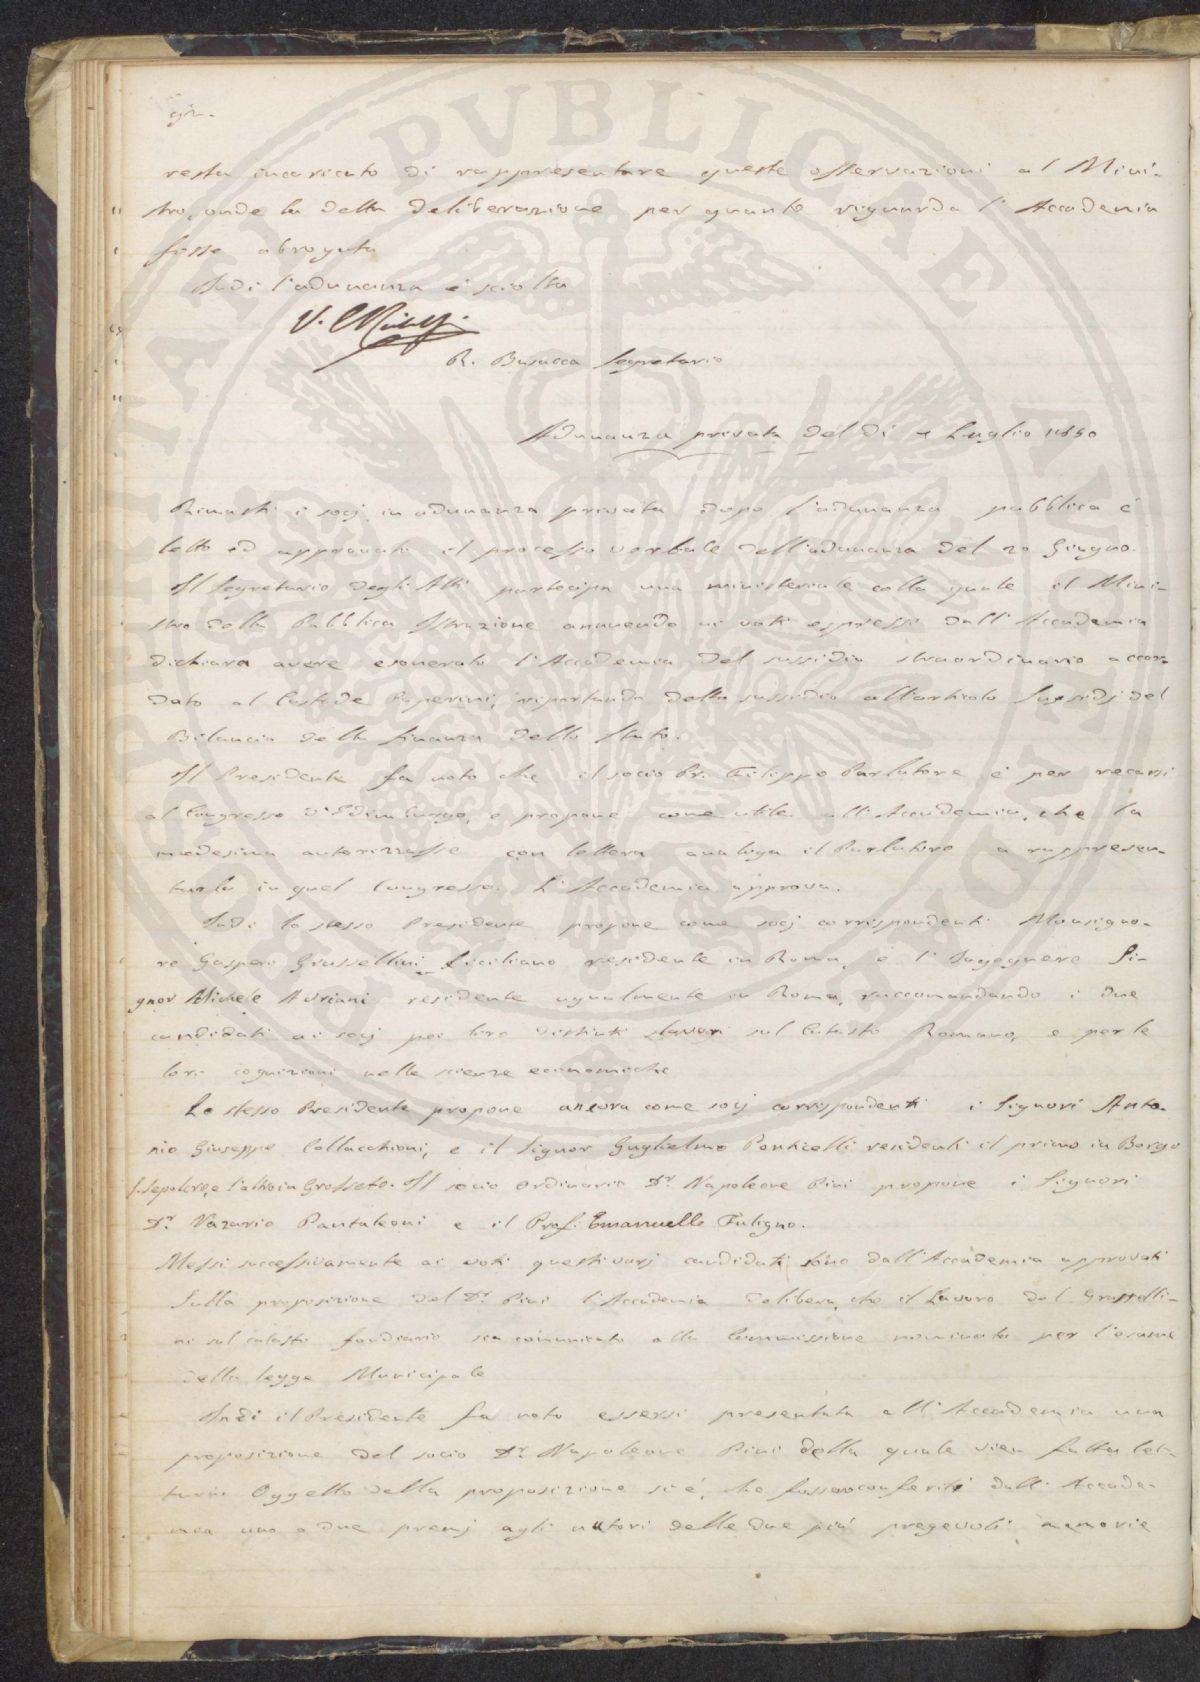 92.
resta incaricato di rappresentare queste osservazioni al Mini-
stro, onde la detta deliberazione per quanto riguarda l'Accademia
fosse abrogata
Indi l'adunanza è sciolta
R. Busacca Segretario
Adunanza privata del dì Luglio 1850
Rimasti i socj in adunanza privata dopo l'adunanza pubblica è
letto ed approvato il processo verbale dell'adunanza del 20 Giugno.
Il Segretario degli Atti partecipa una ministeriale colla quale il Mini-
stro della Pubblica Istruzione annuendo ai voti espressi dall'Accademia
dichiara avere esonerato l'Accademia del sussidio straordinario accor-
dato al Custode Paperini, riportando detto sussidio all'articolo Sussidj del
Bilancio della finanza dello Stato.
Il Presidente fa noto che il socio Pr. Filippo Parlatore è per recarsi
al Congresso d'Edimburgo, e propone come utile all'Accademia, che la
medesima autorizzasse con lettera analoga il Parlatore a rappresen-
tarla in quel Congresso. L'Accademia approva.
Indi lo stesso Presidente propone come socj corrispondenti Monsigno-
re Gaspero Grassellini Siciliano residente in Roma, e l'Ingegnere Si-
gnor Michele Adriani residente ugualmente in Roma, raccomandando i due
candidati ai socj pei loro distinti lavori sul Catasto Romano, e per le
loro cognizioni nelle scienze economiche
Lo stesso Presidente propone ancora come socj corrispondenti i Signori Anto-
nio Giuseppe Collacchioni, e il Signor Guglielmo Ponticelli residenti il primo in Borgo
S. Sepolcro, e l'altro in Grosseto. Il socio ordinario Dr. Napoleone Pini propone i Signori
Dr. Nazario Pantaleoni e il Prof. Emanuelle Fuligno.
Messi successivamente ai voti questi varj candidati sono dall'Accademia approvati
Sulla proposizione del Dr. Pini l'Accademia delibera, che il Lavoro del Grasselli-
ni sul catasto fondiario sia comunicato alla Commissione nominata per l'esame
della legge Municipale
Indi il Presidente fa noto essersi presentata all'Accademia una
proposizione del socio Dr. Napoleone Pini della quale vien fatta let-
tura. Oggetto della proposizione si è, che fossero conferiti dall'Accade-
mia uno o due premj agli autori delle due più pregevoli memorie